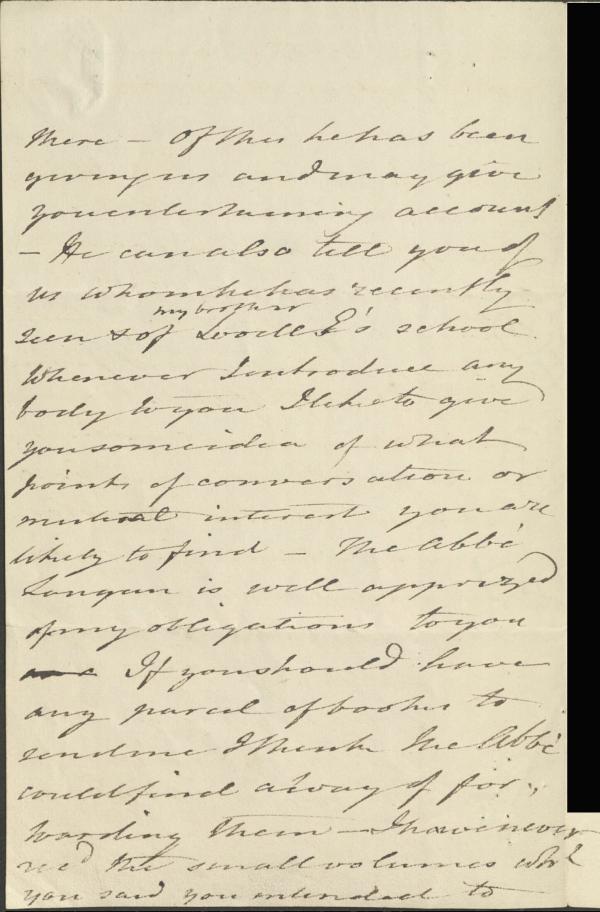 there – Of this he has been
giving us and may give
you entertaining account
– He can also tell you of
us whom he has recently
my brother
seen & of Lovell E's school.
Whenever I introduce any
body to you I like to give
you some idea of what
points of conversation or
mutual interest you are
likely to find – The Abbé
Langan is well apprized
of my obligations to you
If you should have
any parcel of books to
send me I think the Abbé
could find a way of for-
warding them – I have never
recd the small volumes whch
you said you intended to